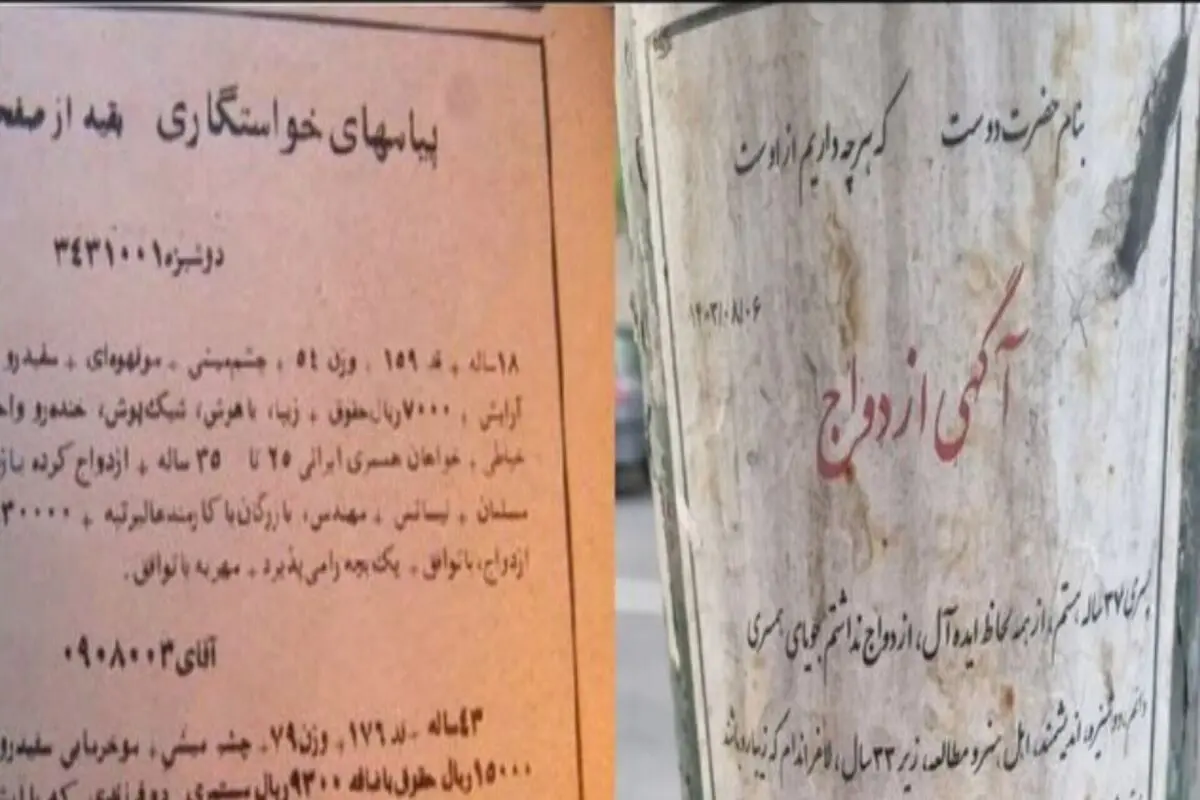 پیامهای خواستگاری بقیه از صفح
دوشیزه ۳۴۳۱۰۰۱
۱۸ساله + قد ۱۵۹ . وزن ٥٤ ، چشم‌میشی - موقهوه‌ای + سفیدرو
آرایش ، ۷۰۰۰ریال‌حقوق + زیبا، باهوش، شیک‌پوش، خنده‌رو
خیاطی ، خواهان همسری ایرانی ۲۵ تا ۳۵ ساله + ازدواج کرده
مسلمان + لیسانس + مهندس، بازرگان‌یا کارمندعالیرتبه + ۳۰۰۰۰
ازدواج، باتوافق - یک‌بچه رامی‌پذیرد - مهریه باتوافق.
آقای ۰۹۰۸۰۰۳
۴۳ساله - قد ۱۷۶ - وزن ۷۹- چشم میشی - موخرمایی سفیدرو
۱۵۰۰۰ریال حقوق‌باضافه ۹۳۰۰ریال مستمری
بنام حضرت دوست که هرچه داریم از اوست
۱۴۰۳/۰۸/۰۶
آگهی ازدواج
پسری ۳۷ساله هستم، از همه لحاظ ایده‌آل، ازدواج نداشتم جویای همسری
دائم، دوشیزه، اندیشمند، اهل هنر و مطالعه، زیر ۳۳سال، لاغر اندام که زیبارو باشد